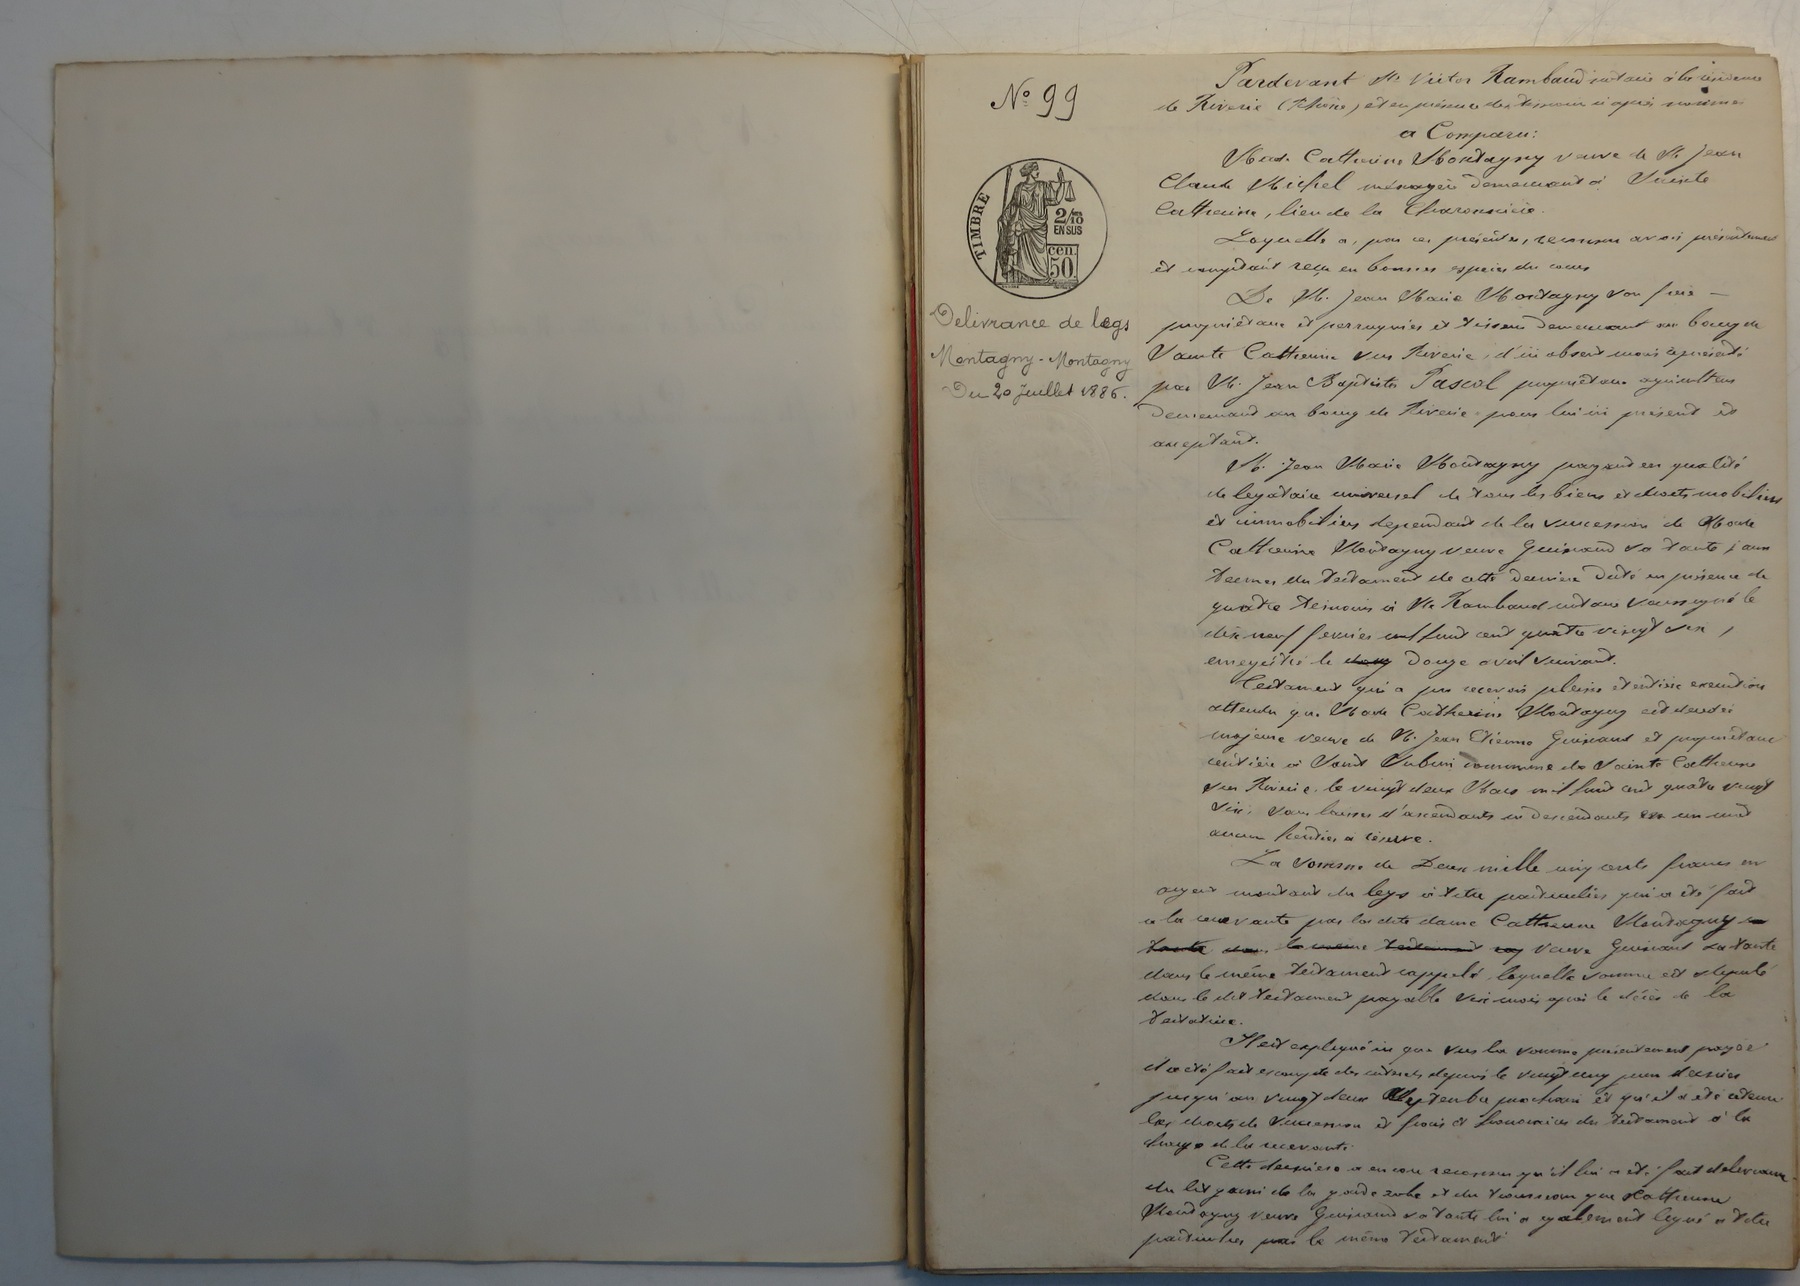 Nº 99
TIMBRE
2/10
EN SUS
cen.
50.
Delivrance de legs
Montagny - Montagny
Du 20 Juillet 1886.
Pardevant Me Victor Rambaud notaire à la résidence
de Riverie (Rhône) et en présence des témoins ci après nommés
a Comparu:
Made Catherine Montagny veuve de M. Jean
Claude Michel ménagère demeurant à Sainte
Catherine, lieu de la Charonnière.
Laquelle a, par ces présentes, reconnu avoir présentement
et comptant reçu en bonnes espèces du cours
De M. Jean Marie Montagny son frère —
propriétaire et perruquier et demeurant au bourg de
Sainte Catherine sur Riverie, d'ici absent mais représenté
par M. Jean Baptiste Pascal propriétaire agriculteur
demeurant au bourg de Riverie pour lui ici présent et
acceptant.
M. Jean Marie Montagny payant en qualité
de legataire universel de tous les biens et droits mobiliers
et immobiliers dependant de la succession de Made
Catherine Montagny veuve Guinand sa tante, aux
termes du testament de cette dernière dicté en présence de
quatre témoins à Me Rambaud notaire soussigné le
dix neuf fevrier mil huit cent quatre vingt six,
enregistré le douze avril suivant.
Testament qui a pu recevoir pleine et entière execution
attendu que Made Catherine Montagny est décédée
majeure veuve de M. Jean Etienne Guinand et propriétaire
rentière à Saint commune de Sainte Catherine
sur Riverie le vingt deux Mars mil huit cent quatre vingt
six, sans laisser d'ascendants ni descendants ni
aucun héritier a réserve.
La somme de Deux mille cinq cents francs en
argent montant du legs à titre particulier qui a été fait
a la recevante par la dite dame Catherine Montagny
tante dans le même testament veuve Guinand sa tante
dans le même testament rappelé laquelle somme est stipulé
dans le dit testament payable six mois après le décès de la
testatrice.
Il est expliqué ici que sur la somme présentement payée
il a été fait escompte des intérêts depuis le vingt cinq juin dernier
jusqu'au vingt deux Septembre prochain et qu'il a été retenu
les droits de succession et frais et honoraires du testament à la
charge de la recevante.
Cette dernière a encore reconnu qu'il lui a été fait delivrance
du lit garni de la garde robe et du trousseau que Catherine
Montagny veuve Guinand sa tante lui a egalement legué a titre
particulier par le même testament